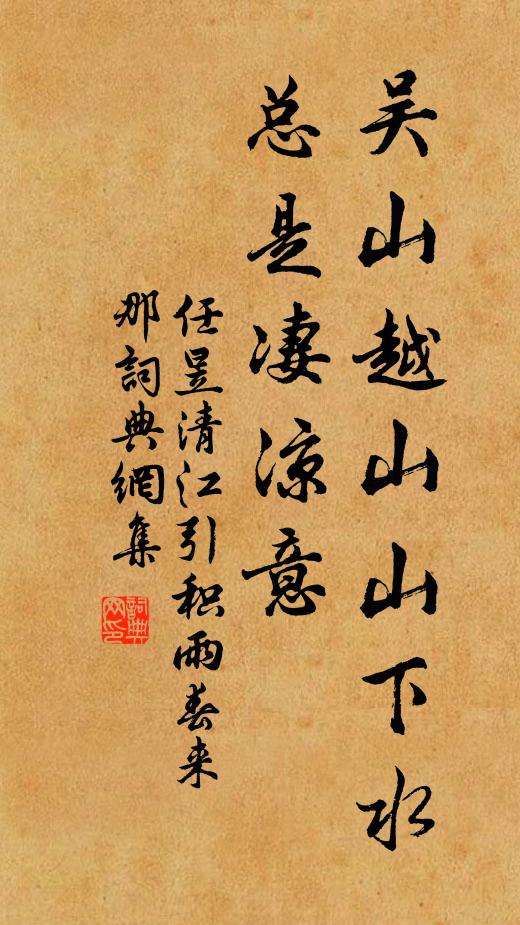 吴山越山山下水
总是凄凉意
任昱清江引积雨春来
那詞典網集
詞典
网印